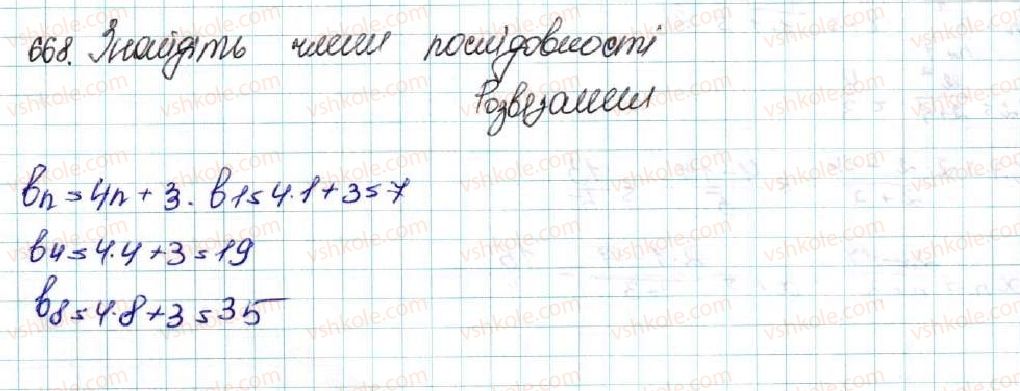 668. Знайдіть члени послідовності
Розвязання
bn = 4n + 3. b1 = 4·1 + 3 = 7
b4 = 4·4 + 3 = 19
b8 = 4·8 + 3 = 35